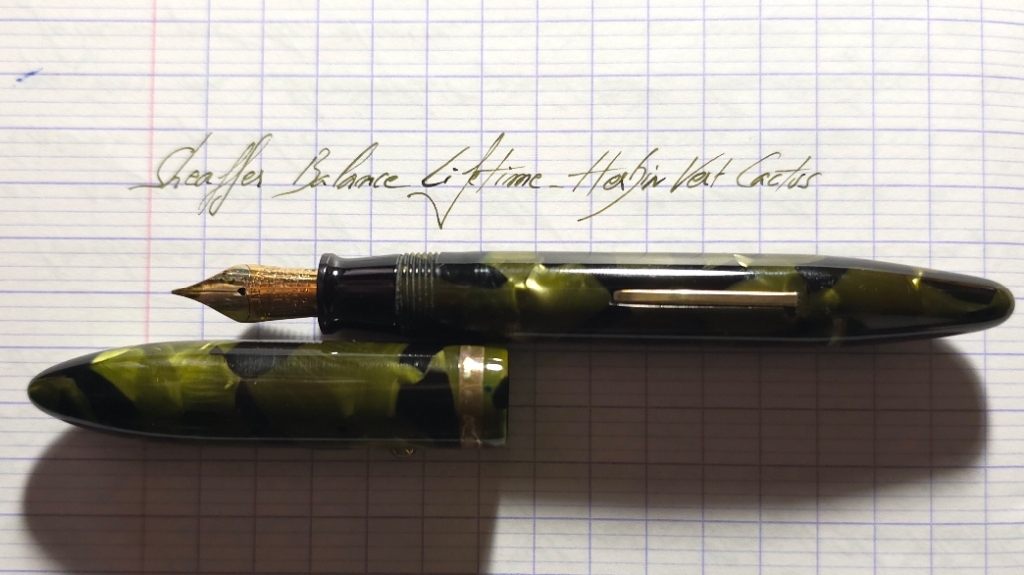 Sheaffer Balance Lifetime - Herbin Vert Cactus